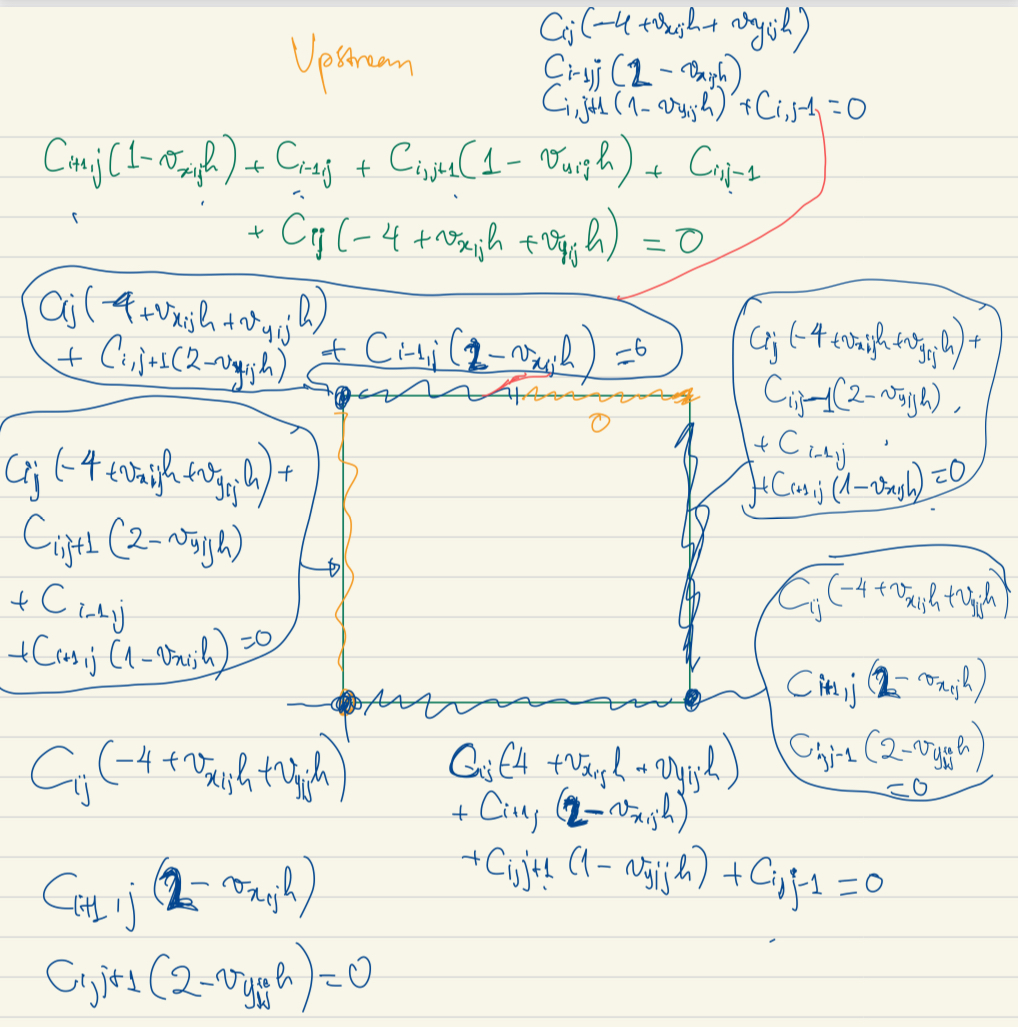 Upstream
C_ij(-4 + v_xij h + v_yij h)
C_i-1,j (2 - v_xij h)
C_i,j+1 (1 - v_yij h) + C_i,j-1 = 0
C_i+1,j (1 - v_xij h) + C_i-1,j + C_i,j+1 (1 - v_yij h) + C_i,j-1
+ C_ij (-4 + v_xij h + v_yij h) = 0
C_ij (-4 + v_xij h + v_yij h)
+ C_i,j+1 (2 - v_yij h) + C_i-1,j (2 - v_xij h) = 0
C_ij (-4 + v_xij h + v_yij h) +
C_i,j-1 (2 - v_yij h)
+ C_i-1,j
+ C_i+1,j (1 - v_xij h) = 0
0
C_ij (-4 + v_xij h + v_yij h) +
C_i,j+1 (2 - v_yij h)
+ C_i-1,j
+ C_i+1,j (1 - v_xij h) = 0
C_ij (-4 + v_xij h + v_yij h)
C_i+1,j (2 - v_xij h)
C_i,j-1 (2 - v_yij h)
= 0
C_ij (-4 + v_xij h + v_yij h)
C_i+1,j (2 - v_xij h)
C_i,j+1 (2 - v_yij h) = 0
C_ij (-4 + v_xij h + v_yij h)
+ C_i+1,j (2 - v_xij h)
+ C_i,j+1 (1 - v_yij h) + C_i,j-1 = 0